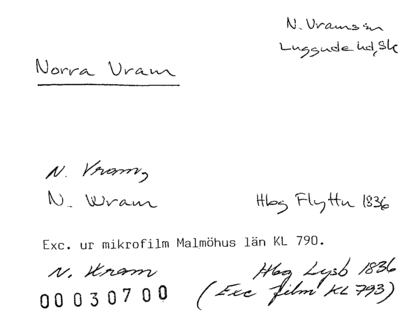 N. Vramssn
Luggude hd, Sk
Norra Vram
N. Vram,
N. Wram Hbg Flyttn 1836
Exc. ur mikrofilm Malmöhus län KL 790.
N. Wram Hbg Lysb 1836
00030700 (Exc film KL 793)